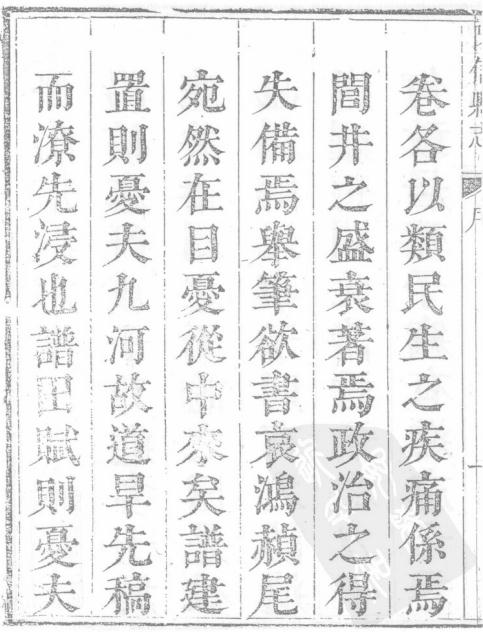 卷各以類民生之疾痛係焉
閭井之盛衰著焉政治之得
失備焉舉筆欲書哀鴻赬尾
宛然在目憂從中來矣譜建
置則憂夫九河故道旱先稿
而潦先浸也譜田賦則憂夫